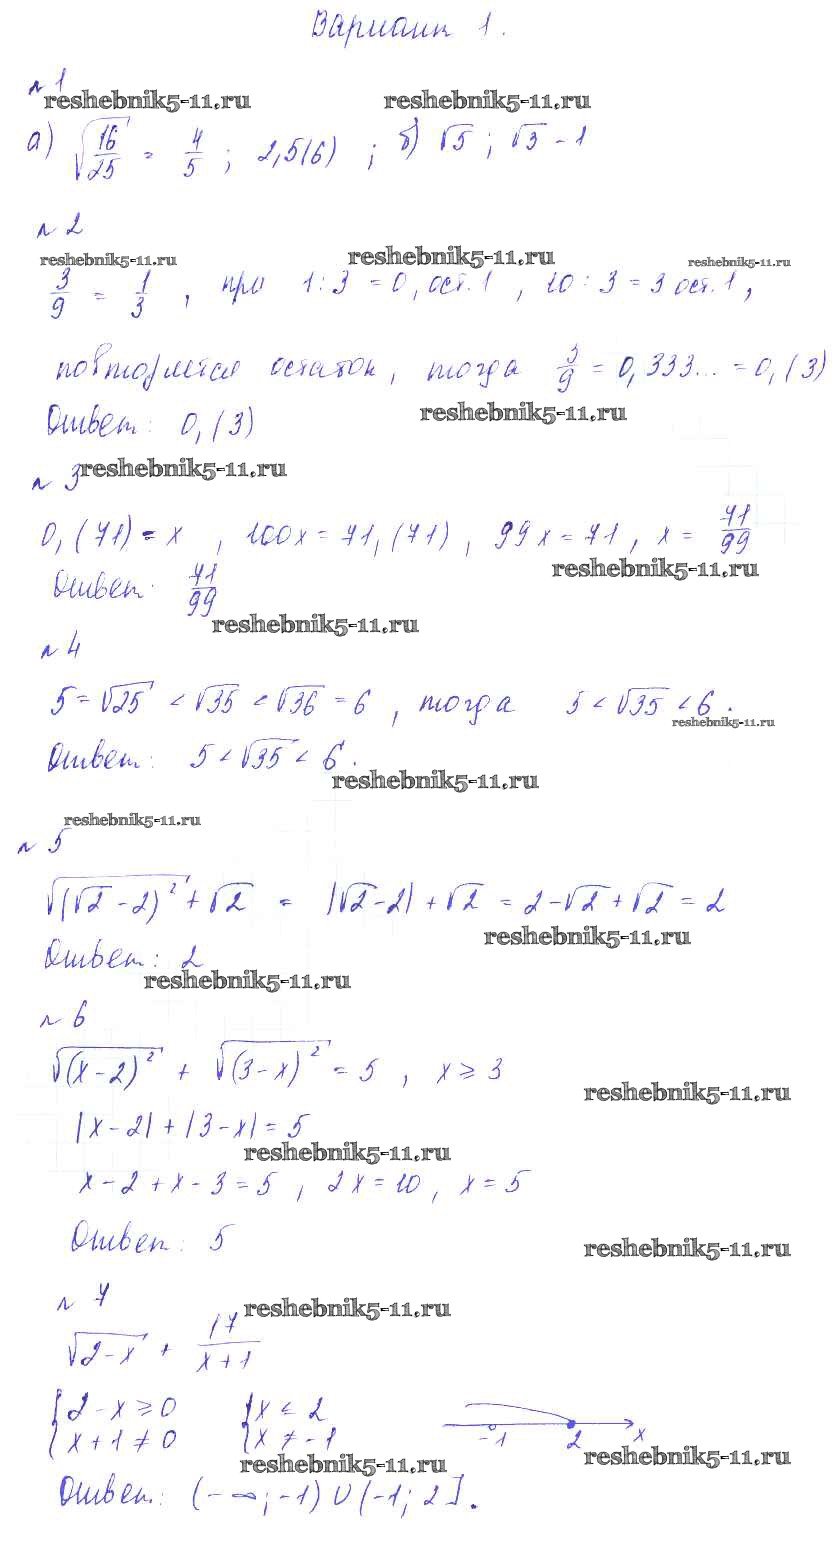 Вариант 1.
№1
reshebnik5-11.ru reshebnik5-11.ru
а) √(16/25) = 4/5 ; 2,5(6) ; б) √5 ; √3 - 1
№2
reshebnik5-11.ru reshebnik5-11.ru reshebnik5-11.ru
3/9 = 1/3 , при 1 : 3 = 0, ост. 1 , 10 : 3 = 3 ост. 1 ,
повторяется остаток, тогда 3/9 = 0,333... = 0,(3)
Ответ: 0,(3) reshebnik5-11.ru
№3 reshebnik5-11.ru
0,(71) = x , 100x = 71,(71) , 99x = 71 , x = 71/99
reshebnik5-11.ru
Ответ: 71/99
reshebnik5-11.ru
№4
5 = √25 < √35 < √36 = 6 , тогда 5 < √35 < 6 .
reshebnik5-11.ru
Ответ: 5 < √35 < 6 .
reshebnik5-11.ru
reshebnik5-11.ru
№5
√((√2 - 2)²) + √2 = |√2 - 2| + √2 = 2 - √2 + √2 = 2
reshebnik5-11.ru
Ответ: 2
reshebnik5-11.ru
№6
√((x - 2)²) + √((3 - x)²) = 5 , x ⩾ 3
reshebnik5-11.ru
|x - 2| + |3 - x| = 5
reshebnik5-11.ru
x - 2 + x - 3 = 5 , 2x = 10 , x = 5
Ответ: 5 reshebnik5-11.ru
№7 reshebnik5-11.ru
√(2 - x) + 17/(x + 1)
{ 2 - x ⩾ 0 { x ⩽ 2
{ x + 1 ≠ 0 { x ≠ -1 -1 2 x
reshebnik5-11.ru reshebnik5-11.ru
Ответ: (-∞; -1) ∪ (-1; 2].